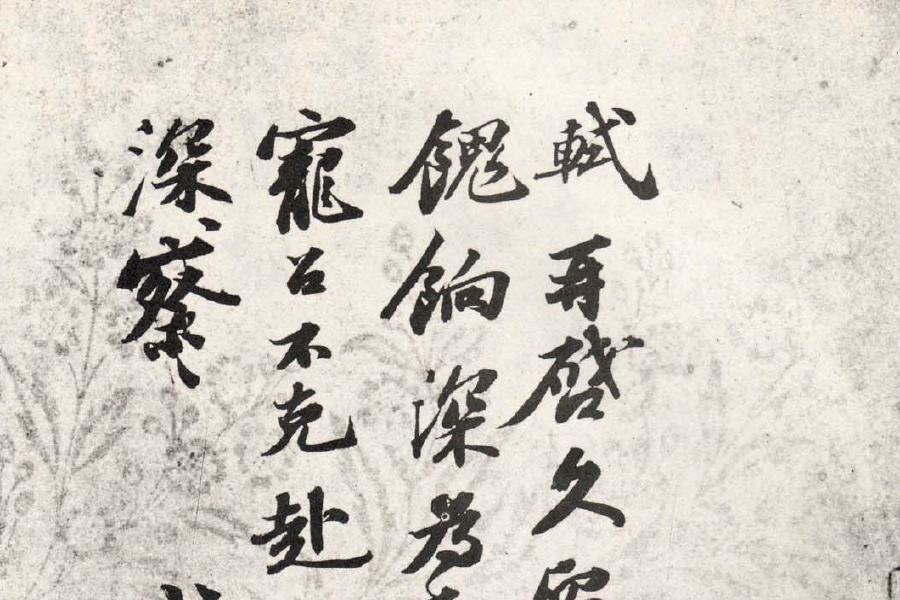 軾再啓久
餽餉深為
寵召不克赴
深察